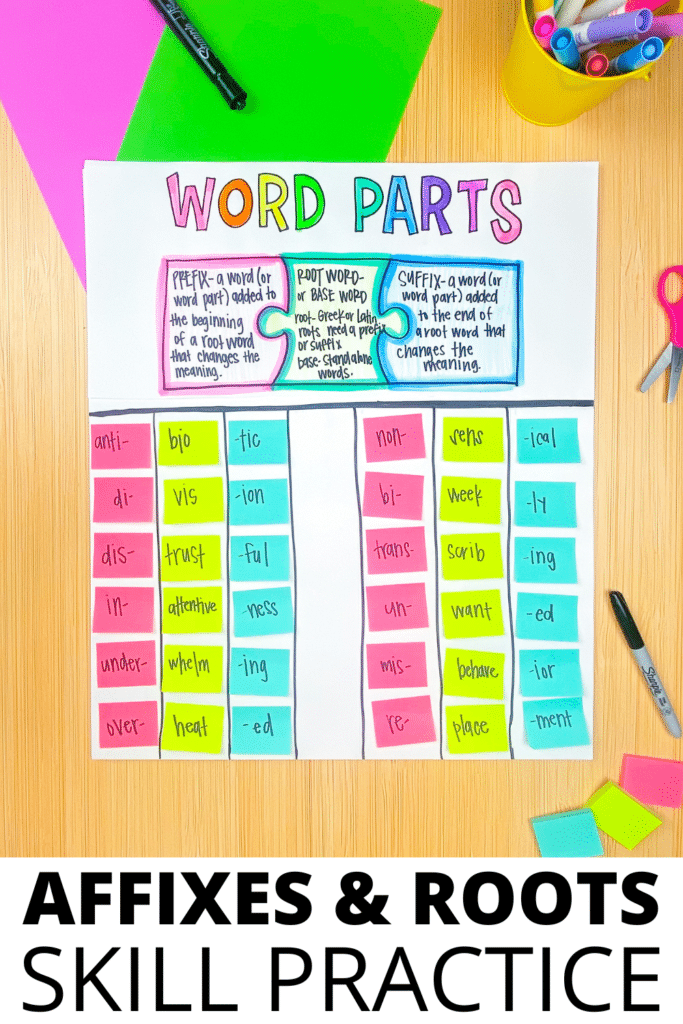 WORD PARTS
PREFIX- a word (or
word part) added to
the beginning
of a root word
that changes the
meaning.
ROOT WORD-
or BASE WORD
root- Greek or Latin
roots need a prefix
or suffix
base- standalone
words.
SUFFIX- a word (or
word part) added
to the end of
a root word that
changes the
meaning.
anti- bio -tic
di- vis -ion
dis- trust -ful
in- attentive -ness
under- whelm -ing
over- heat -ed
non- sens -ical
bi- week -ly
trans- scrib -ing
un- want -ed
mis- behave -ior
re- place -ment
Sharpie
Sharpie
AFFIXES & ROOTS
SKILL PRACTICE